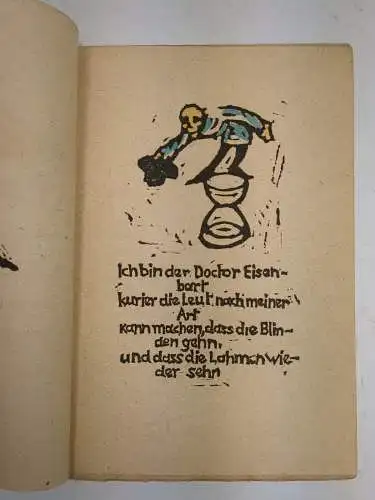 Ich bin der Doctor Eisen-
bart
kurier die Leut nach meiner
Art
kann machen, dass die Blin-
den gehn,
und dass die Lahmen wie-
der sehn